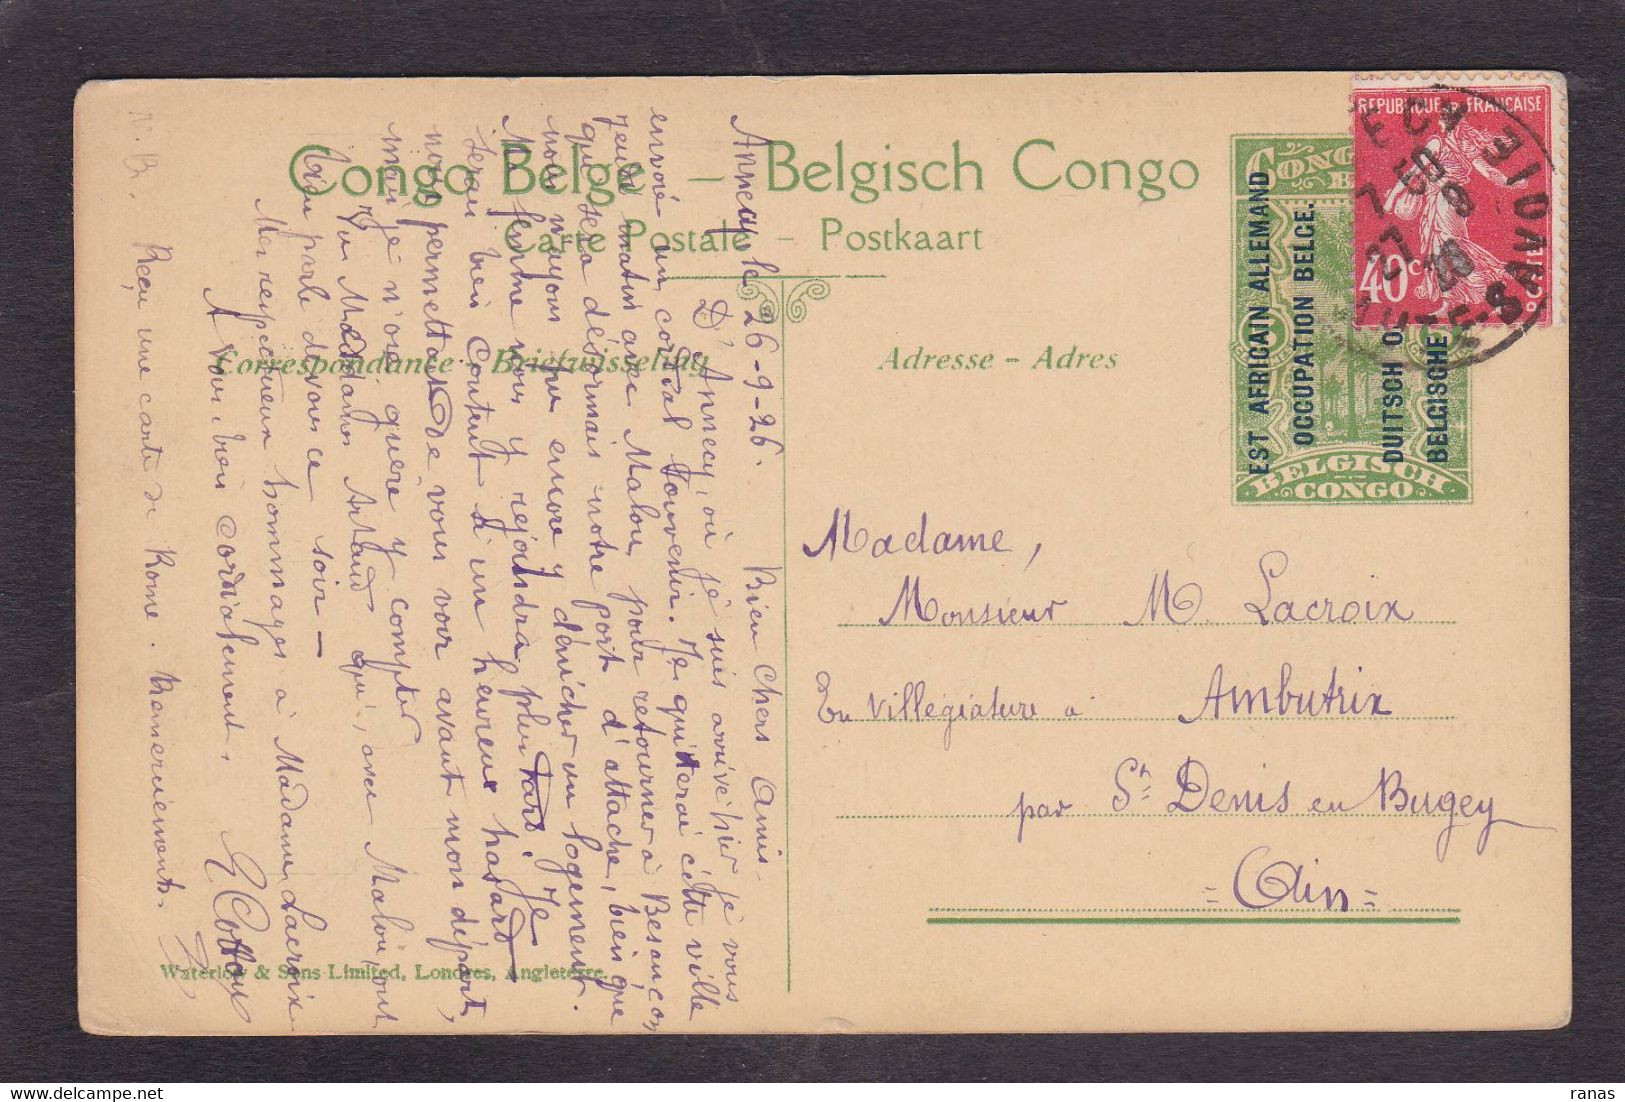 Congo Belge – Belgisch Congo
Carte Postale – Postkaart
Correspondance – Briefwisseling
Adresse – Adres
CONGO
BELGISCH
CONGO
EST AFRICAIN ALLEMAND
OCCUPATION BELGE.
DUITSCH O
BELGISCHE
REPUBLIQUE FRANÇAISE
40 c
7 50
27
HTE-SAVOIE
Madame,
Monsieur M. Lacroix
En villégiature à Ambutrix
par St Denis en Bugey
= Ain =
Annecy le 26-9-26.
Bien chers Amis
D'Annecy, où je suis arrivé hier je vous
envoie un cordial souvenir. Je quitterai cette ville
jeudi matin avec Malou, pour retourner à Besançon,
qui sera désormais notre port d'attache, bien que
nous n'ayons pu encore y dénicher un logement.
Ma femme nous y rejoindra plus tard. Je
serai bien content si un heureux hasard
nous permettait de vous voir avant mon départ,
mais je n'ose guère y compter
Vu Mesdames Artaud qui, avec Malou, ont
parlé de vous ce soir —
Mes respectueux hommages à Madame Lacroix
A vous bien cordialement.
N.B. Reçu une carte de Rome. Remerciements.
Waterlow & Sons Limited, Londres, Angleterre.
ranas